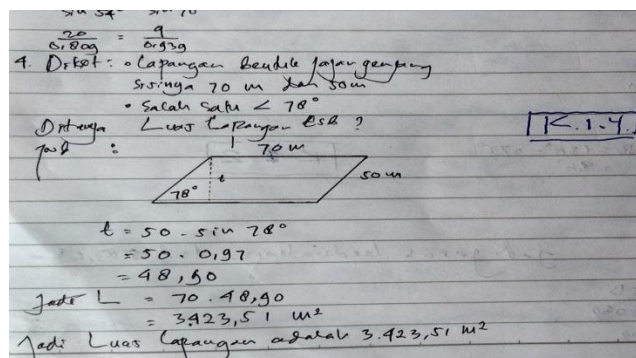 sin 54° sin 70
20 = 9
0,809 0,939
4. Diket : • Lapangan bentuk jajar genjang
sisinya 70 m dan 50 m
• Salah satu < 78°
Ditanya Luas Lapangan tsb ?
Jawab :
70 m
50 m
t
78°
K.1.4.
t = 50 . sin 78°
= 50 . 0,97
= 48,90
Jadi L = 70 . 48,90
= 3423,51 m²
Jadi Luas Lapangan adalah 3.423,51 m²